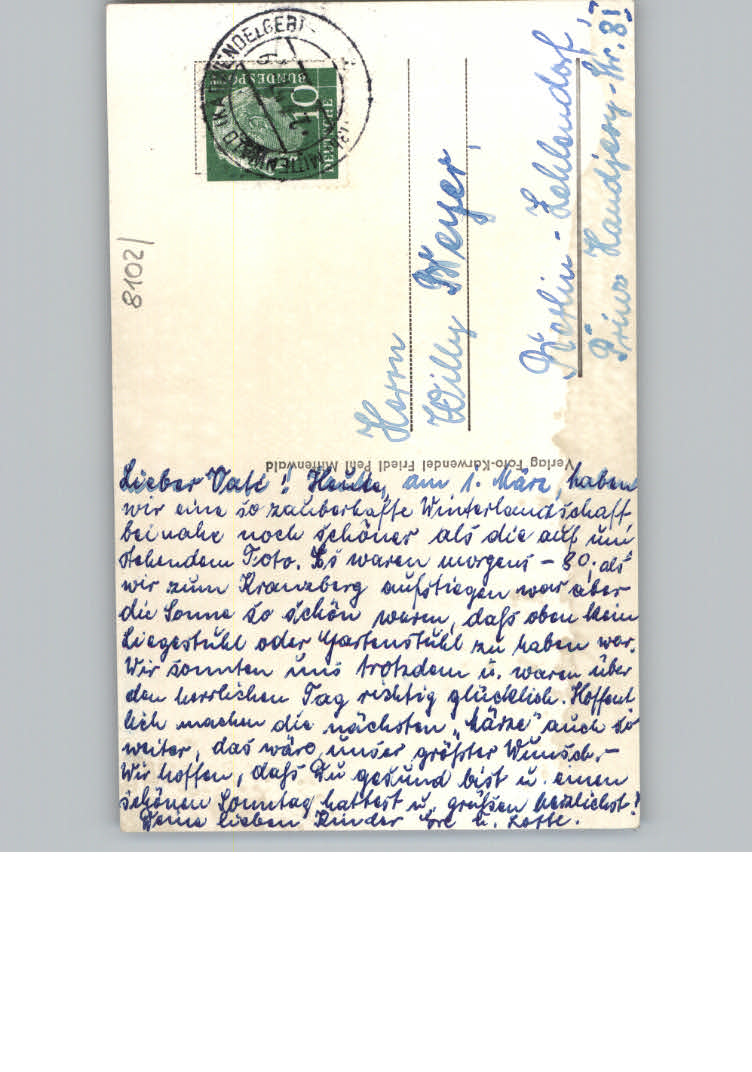 Lieber Vati! Heute, am 1. März, haben
wir eine so zauberhafte Winterlandschaft
beinahe noch schöner als die auf um
stehendem Foto. Es waren morgens – 80. als
wir zum Kranzberg aufstiegen war aber
die Sonne so schön waren, daß oben kein
Liegestuhl oder Gartenstuhl zu haben war.
Wir sonnten uns trotzdem u. waren über
den herrlichen Tag richtig glücklich. Hoffent
lich machen die nächsten „Märze" auch so
weiter, das wäre unser größter Wunsch.–
Wir hoffen, daß Du gesund bist u. einen
schönen Sonntag hattest u. grüßen herzlichst!
Deine lieben Kinder u. Lotte.
Herrn
Willy Meyer,
Berlin-Zehlendorf,
Prinz Handjery-Str. 8!
Verlag Foto-Karwendel Friedl Pehl Mittenwald
8102/
10
DEUTSCHE
BUNDESPO
MITTENWALD (KARWENDELGEBI